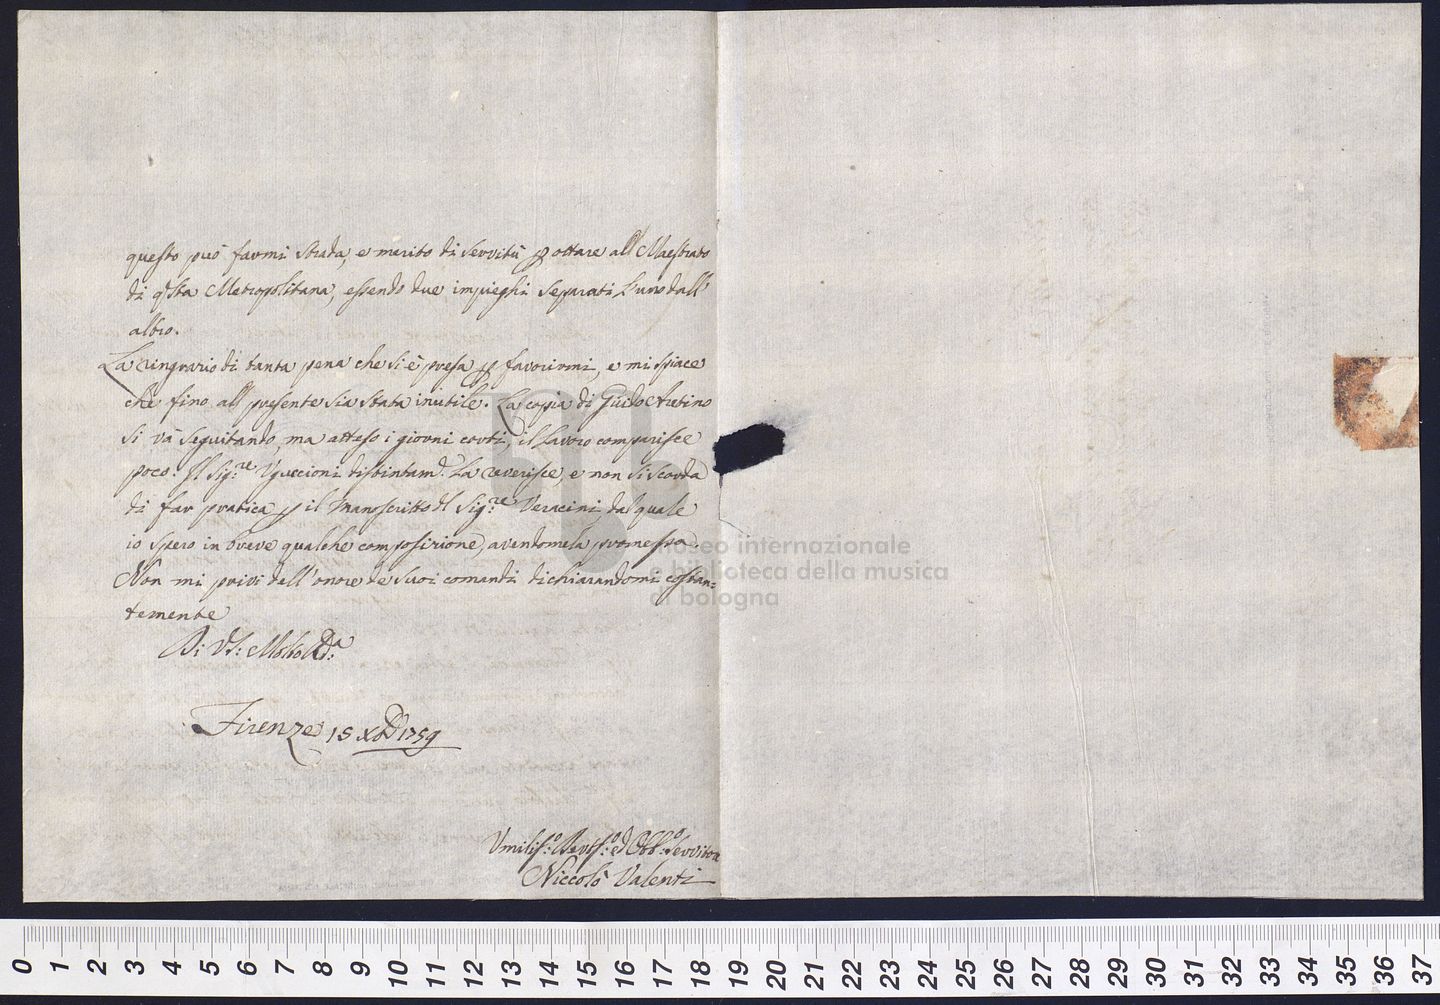 questo può farmi strada, e merito di servitù p ottare all Maestrato
di qsta Metropolitana, essendo due impieghi separati l'uno dall'
altro.
La ringrazio di tanta pena che si è presa p favorirmi, e mi spiace
che fino all presente sia stata inutile. La copia di Guido Aretino
si và seguitando, ma atteso i giorni corti, il lavoro comparisce
poco. Il Sig.re Uguccioni distintam. La riverisce, e non si scorda
di far pratica p il Manoscritto dl Sig.re Veracini, dal quale
io spero in breve qualche composizione, avendomela promessa.
Non mi privi dell'onore de suoi comandi dichiarandomi costan=
temente
Di VS: Molto Rda
Firenze 15 Xbre 1759
Umiliss.o Devots.o ed Obb.o Servitore
Niccolò Valenti
museo internazionale
e biblioteca della musica
di bologna
0 1 2 3 4 5 6 7 8 9 10 11 12 13 14 15 16 17 18 19 20 21 22 23 24 25 26 27 28 29 30 31 32 33 34 35 36 37